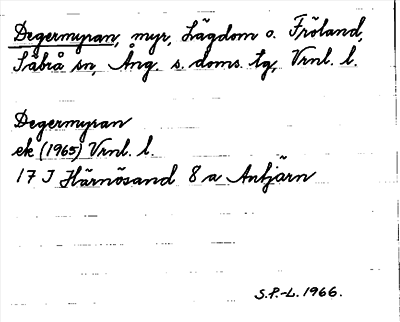 Degermyran, myr, Lägdom o. Fröland,
Säbrå sn, Ång. s. doms. tg, Vrnl. l.
Degermyran
ek (1965) Vrnl. l.
17 J Härnösand 8 a Antjärn
S.P.-L. 1966.